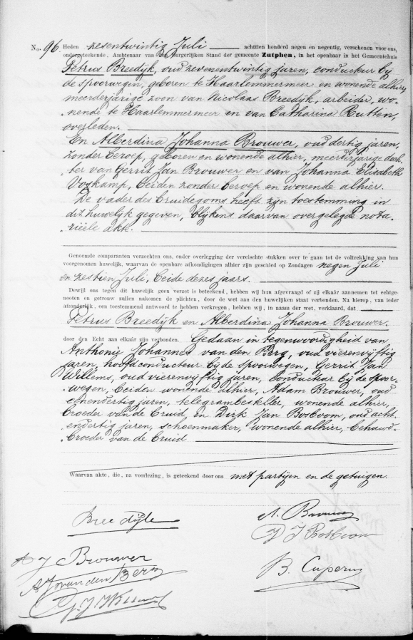 No. 96 Heden zesentwintig Juli achttien honderd negen en negentig, verschenen voor ons,
ondergeteekende, Ambtenaar van den Burgerlijken Stand der gemeente Zutphen, in het openbaar in het Gemeentehuis
Petrus Breedijk, oud zevenentwintig jaren, conducteur bij
de spoorwegen, geboren te Haarlemmermeer en wonende alhier,
meerderjarige zoon van Nicolaas Breedijk, arbeider, wo-
nende te Haarlemmermeer en van Catharina Rutten,
overleden.
En Alberdina Johanna Brouwer, oud dertig jaren,
zonder beroep, geboren en wonende alhier, meerderjarige doch-
ter van Gerrit Jan Brouwer en van Johanna Elisabeth
Voskamp, beiden zonder beroep en wonende alhier.
De vader des bruidegoms heeft zijn toestemming in
dit huwelijk gegeven, blijkens daarvan overgelegde nota-
riëele akte.
Genoemde comparanten verzochten ons, onder overlegging der vereischte stukken over te gaan tot de voltrekking van hun
voorgenomen huwelijk, waarvan de openbare afkondigingen alhier zijn geschied op Zondagen negen Juli
en zestien Juli, beide dezes jaars.
Dewijl ons tegen dit huwelijk geen verzet is beteekend, hebben wij hun afgevraagd of zij elkander aannemen tot echtge-
nooten en getrouw zullen nakomen de plichten, door de wet aan den huwelijken staat verbonden. Na hierop, van ieder
afzonderlijk, een toestemmend antwoord te hebben verkregen, hebben wij, in naam der wet, verklaard, dat
Petrus Breedijk en Alberdina Johanna Brouwer
door den Echt aan elkair zijn verbonden. Gedaan in tegenwoordigheid van
Anthonij Johannes van den Berg, oud vierenvijftig
jaren, hoofdconducteur bij de spoorwegen, Gerrit Jan
Willems, oud vierenvijftig jaren, conducteur bij de spoor-
wegen, beiden wonende alhier, Adam Brouwer, oud
jaren, telegrambesteller, wonende alhier,
broeder van de bruid, en Dirk Jan Bosboom, oud acht-
endertig jaren, schoenmaker, wonende alhier, behuwd-
broeder van de bruid
Waarvan akte, die, na voorlezing, is geteekend door ons met partijen en de getuigen.
Breedijk
A. Brouwer
A J Brouwer
D J Bosboom
A J van den Berg
B. Cuperus
G. J. Willems